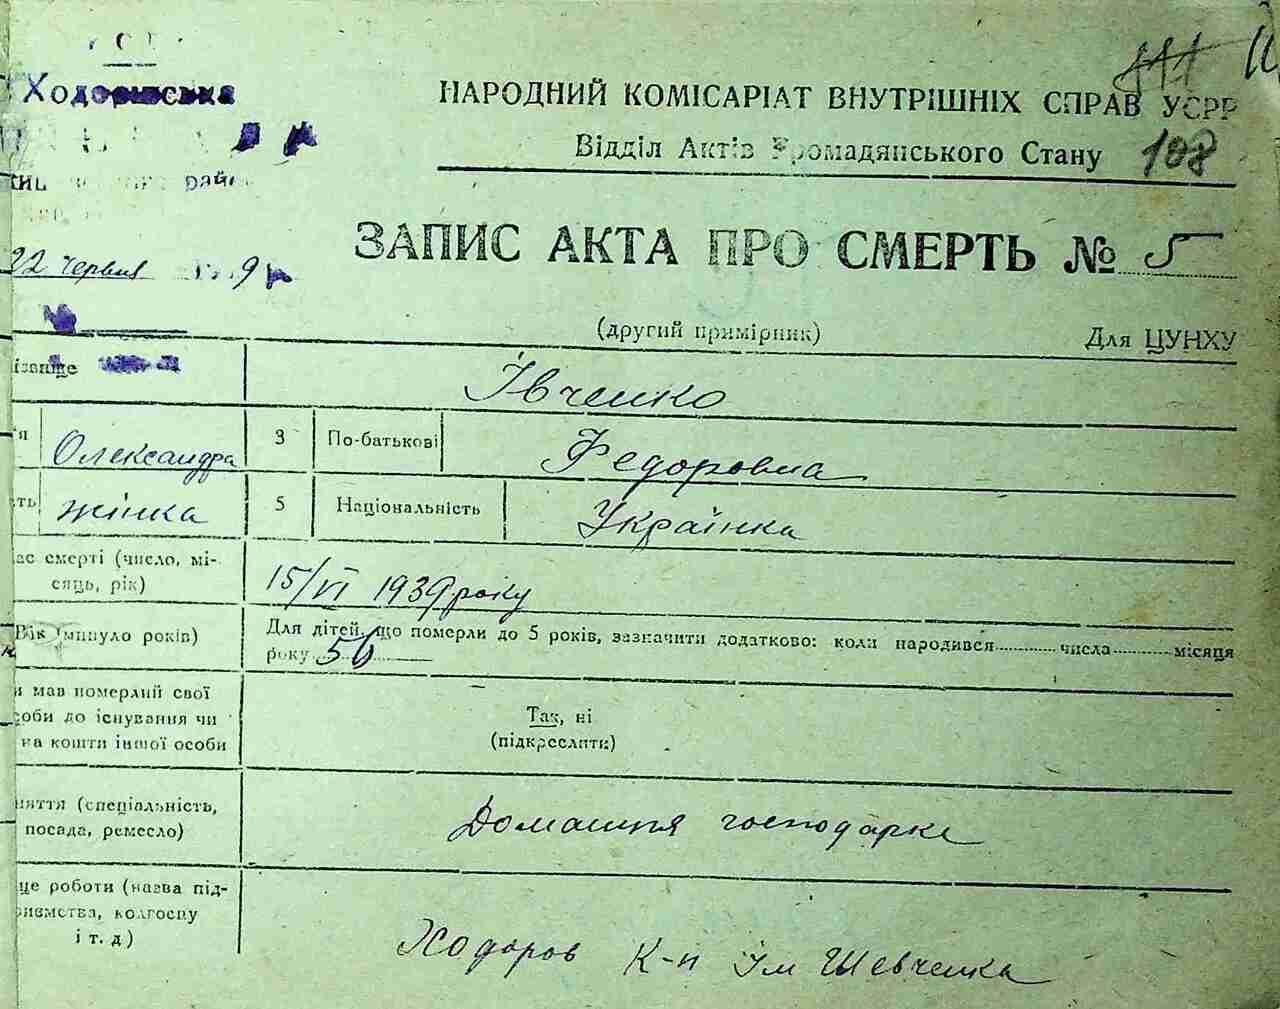 Ходорівська
НАРОДНИЙ КОМІСАРІАТ ВНУТРІШНІХ СПРАВ УСРР
Відділ Актів Громадянського Стану 108
22 червня 9
ЗАПИС АКТА ПРО СМЕРТЬ № 5
(другий примірник) Для ЦУНХУ
ізвище Івченко
я Олександра 3 По-батькові Федоровна
ть жінка 5 Національність Українка
ас смерті (число, мі-
сяць, рік) 15/VI 1939 року
Вік (минуло років) Для дітей, що померли до 5 років, зазначити додатково: коли народився числа місяця
року 56
и мав померлий свої
соби до існування чи
на кошти іншої особи
Так, ні
(підкреслити)
няття (спеціальність,
посада, ремесло) Домашня господарка
це роботи (назва під-
риємства, колгоспу
і т. д) Ходоров К-п Ім Шевченка